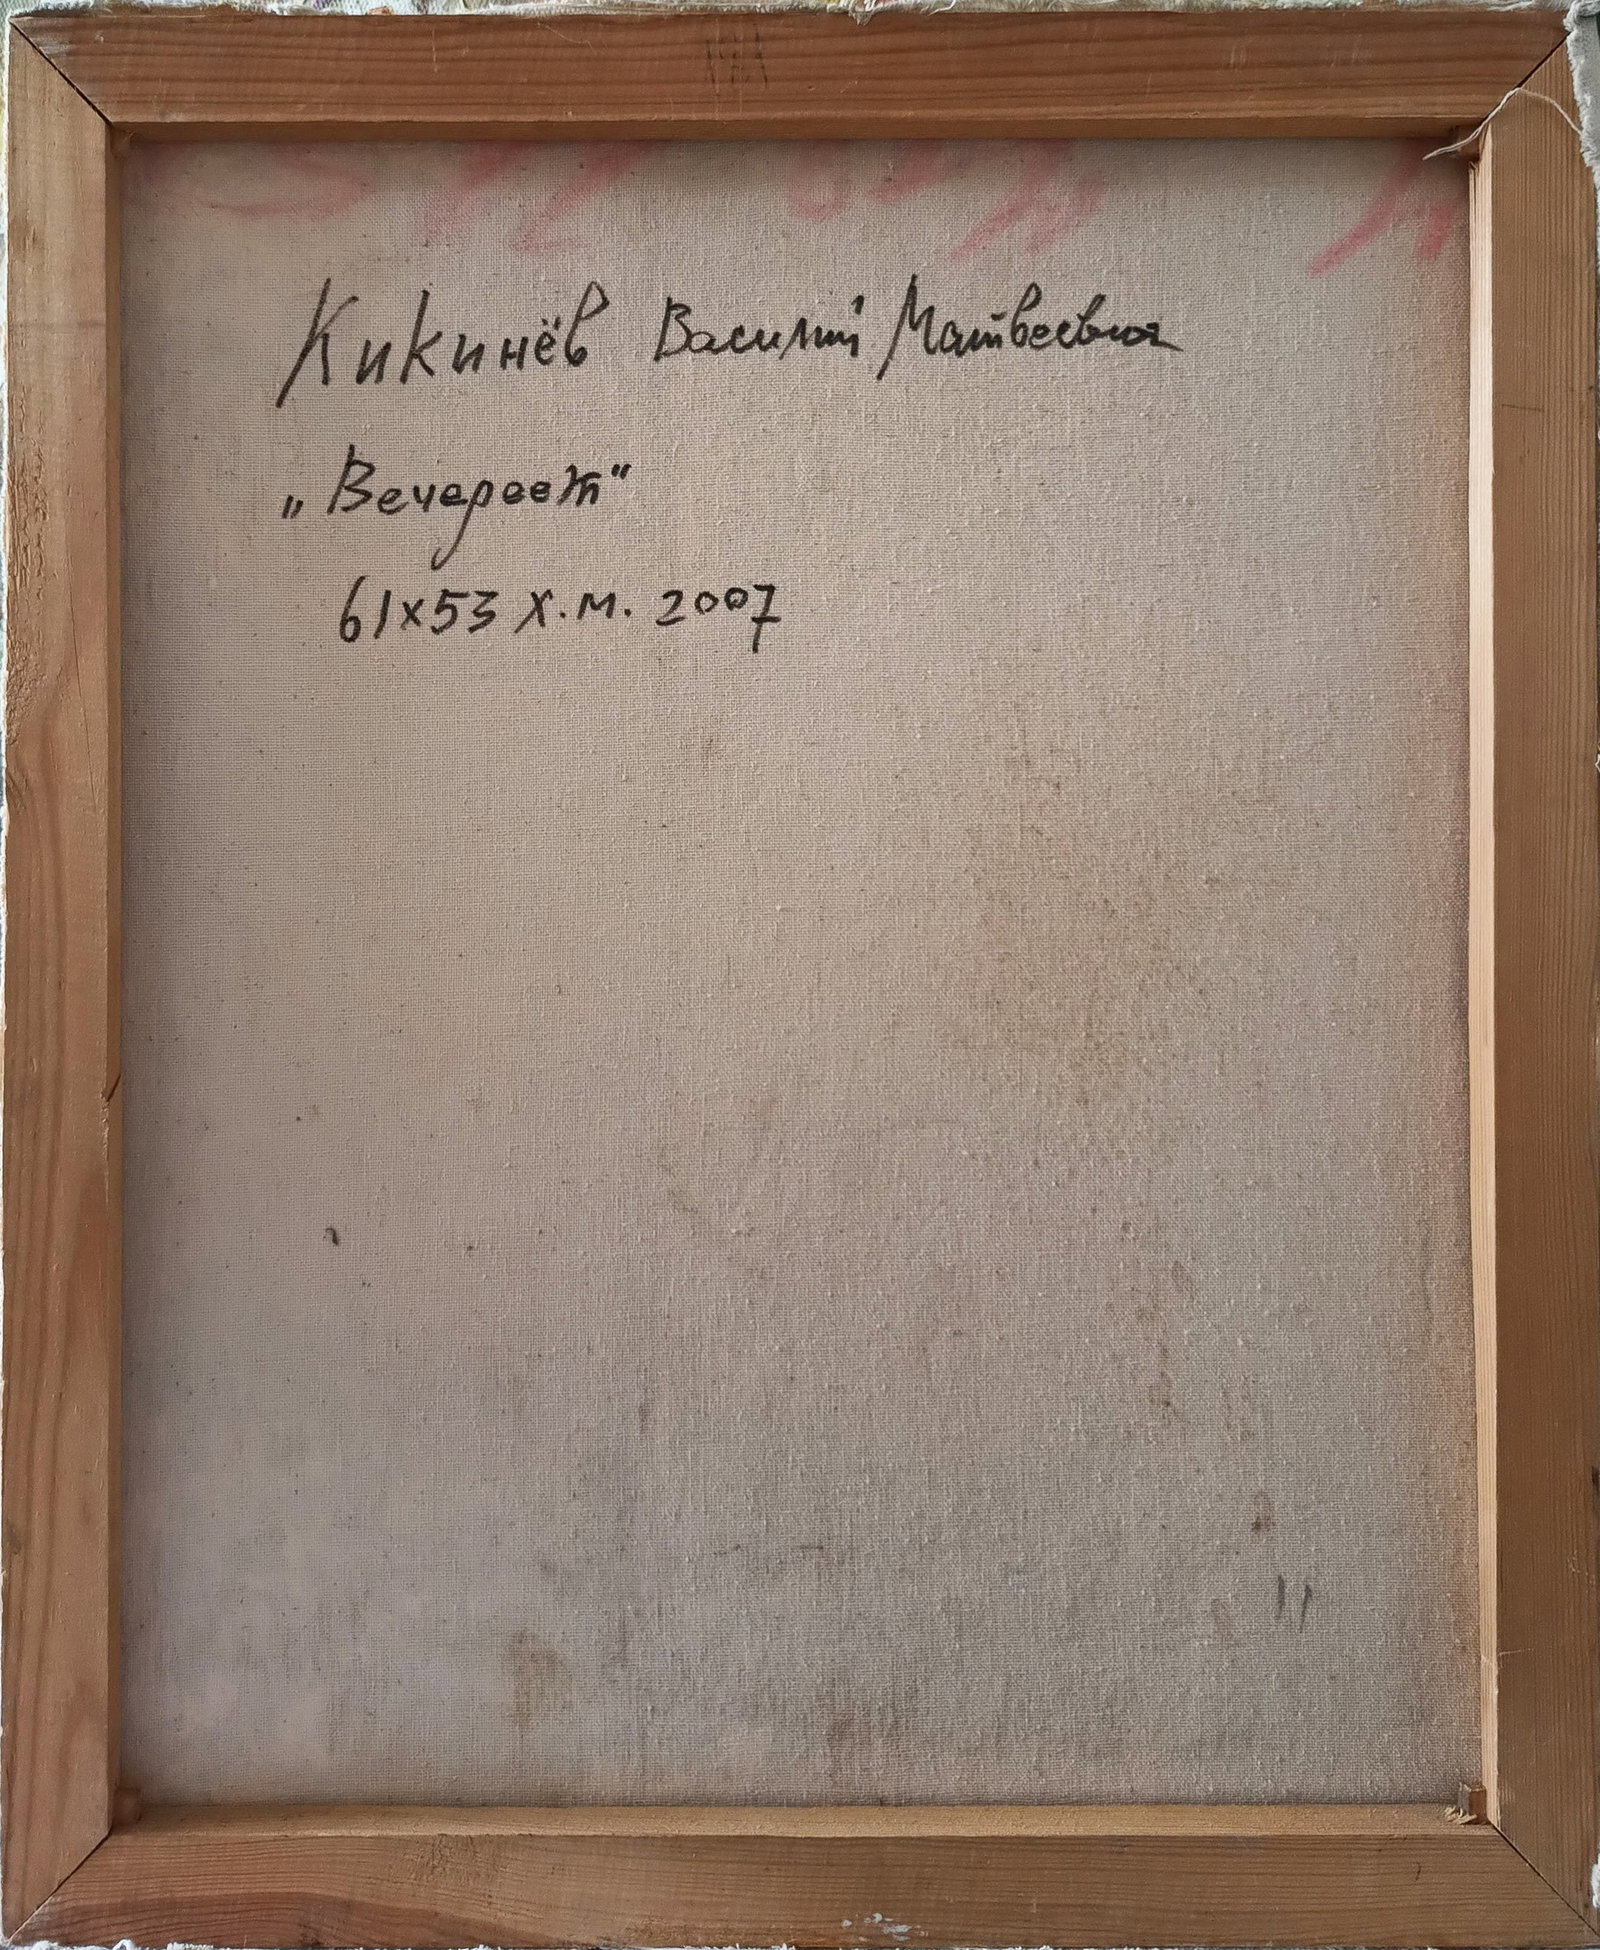 Кикинёв Василий Матвеевич
„Вечереет"
61х53 х.м. 2007